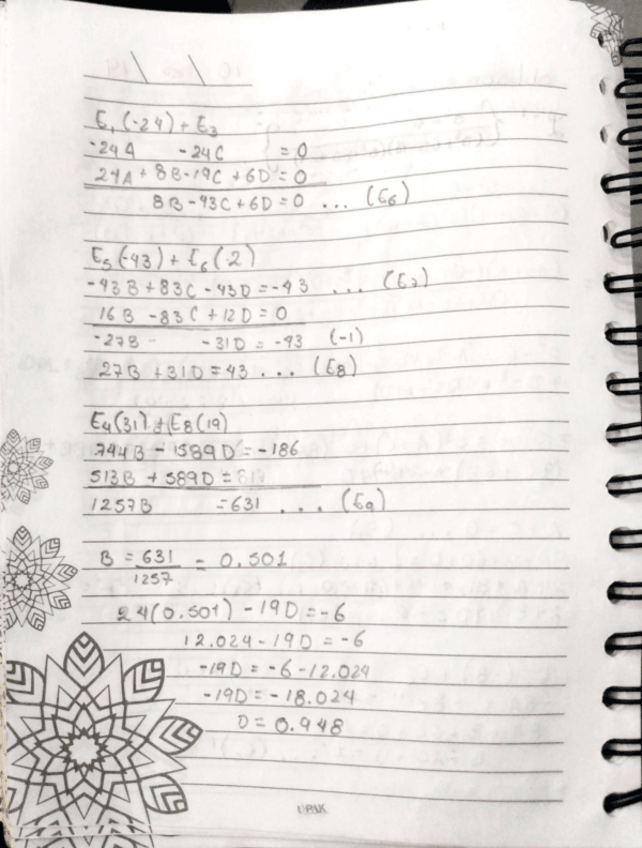 E₁(-24) + E₃
-24A -24C = 0
24A + 8B - 19C + 6D = 0
8B - 43C + 6D = 0 ... (E₆)
E₅(-43) + E₆(-2)
-43B + 83C - 43D = -43 ... (E₇)
16B - 83C + 12D = 0
-27B - 31D = -43 (-1)
27B + 31D = 43 ... (E₈)
E₄(31) + E₈(19)
744B - 1589D = -186
513B + 589D = 817
1257B = 631 ... (E₉)
B = 631/1257 = 0.501
24(0.501) - 19D = -6
12.024 - 19D = -6
-19D = -6 - 12.024
-19D = -18.024
D = 0.948